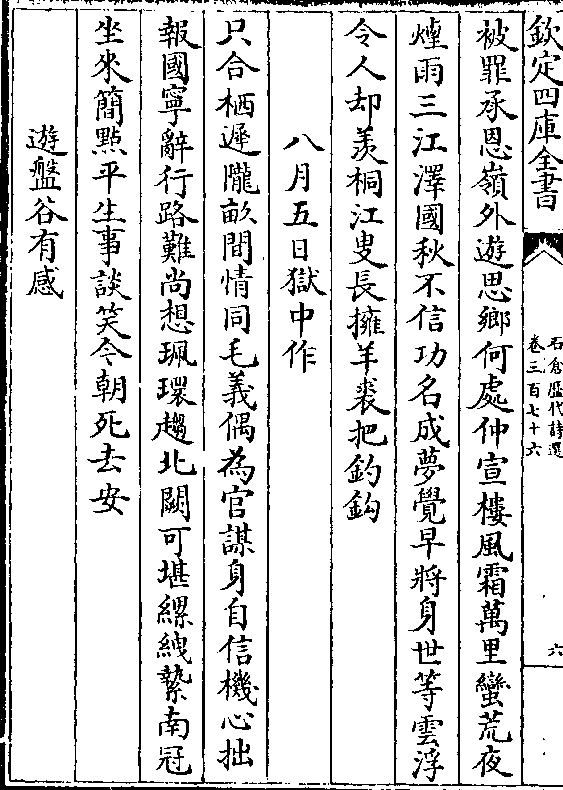 欽定四庫全書
石倉歴代詩選
卷三百七十六
六
被罪承恩嶺外遊思鄉何處仲宣樓風霜萬里蠻荒夜
煙雨三江澤國秋不信功名成夢覺早將身世等雲浮
令人却羨桐江叟長擁羊裘把釣鈎
八月五日獄中作
只合栖遲隴畝間情同毛義偶為官謀身自信機心拙
報國寧辭行路難尚想珮環趨北闕可堪縲絏縶南冠
坐來簡點平生事談笑今朝死去安
遊盤谷有感